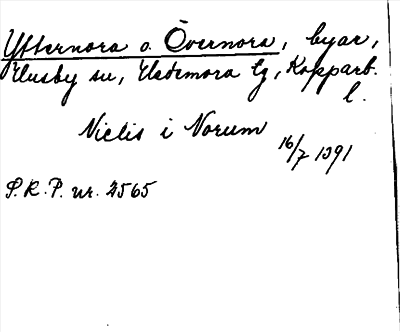 Ytternora o. Övernora, byar,
Husby sn, Hedemora lg, Kopparb.
l.
Niclis i Norum
16/7 1391
S.R.P. nr. 2565